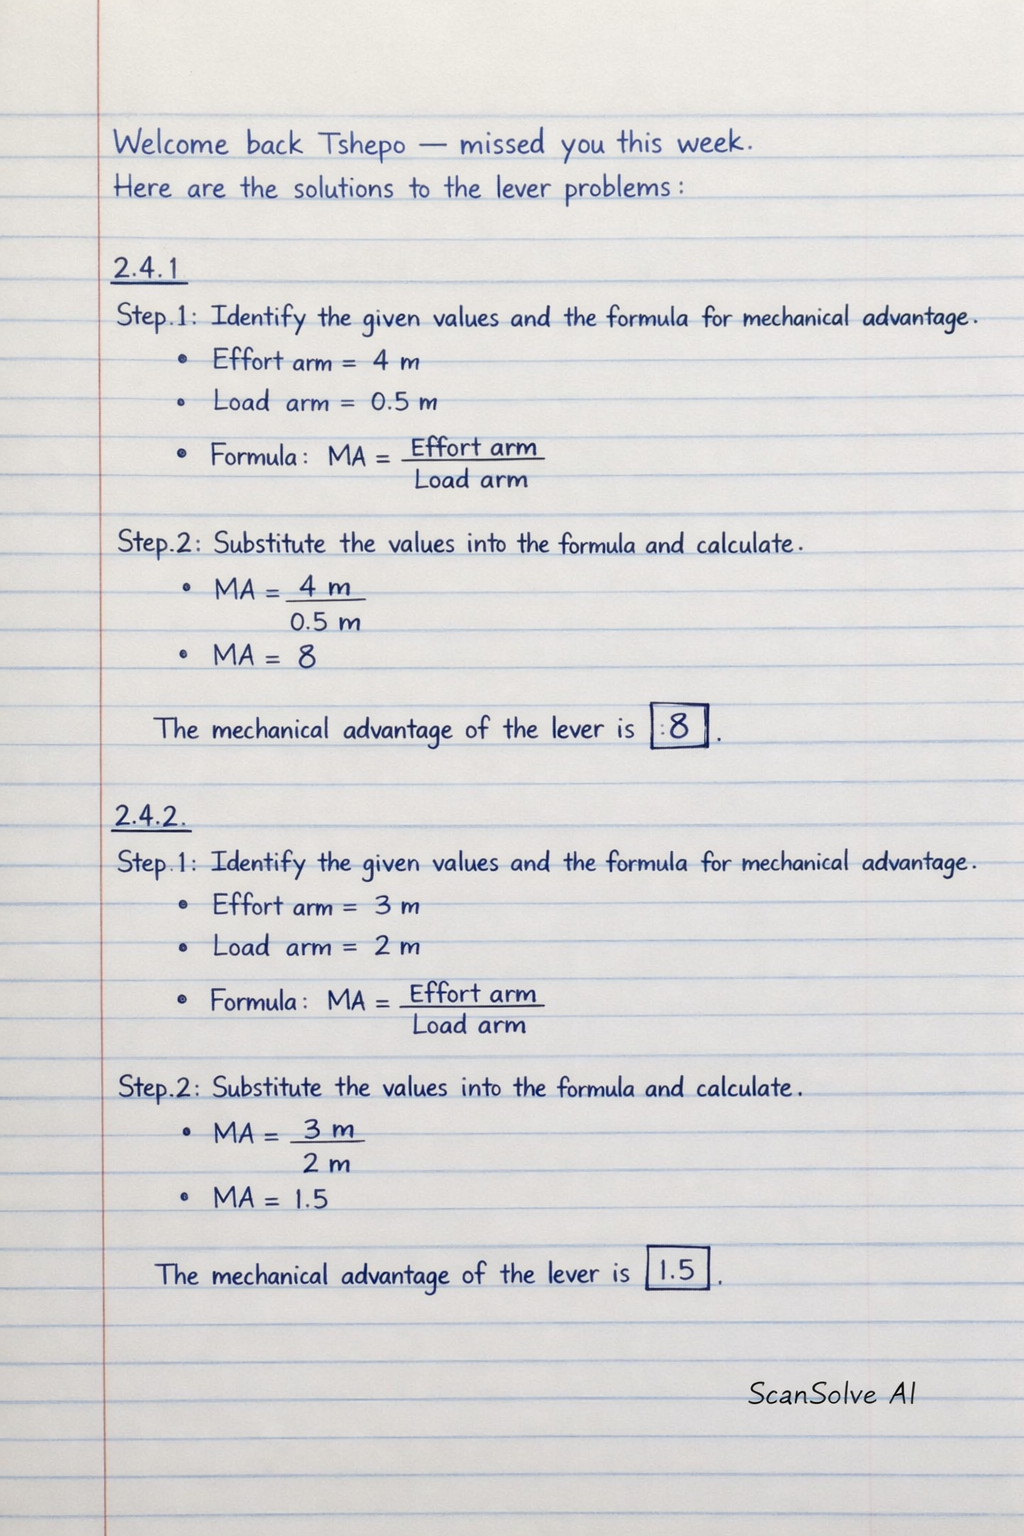 Welcome back Tshepo — missed you this week.
Here are the solutions to the lever problems:
2.4.1
Step.1: Identify the given values and the formula for mechanical advantage.
• Effort arm = 4 m
• Load arm = 0.5 m
• Formula: MA = Effort arm
Load arm
Step.2: Substitute the values into the formula and calculate.
• MA = 4 m
0.5 m
• MA = 8
The mechanical advantage of the lever is :8.
2.4.2.
Step.1: Identify the given values and the formula for mechanical advantage.
• Effort arm = 3 m
• Load arm = 2 m
• Formula: MA = Effort arm
Load arm
Step.2: Substitute the values into the formula and calculate.
• MA = 3 m
2 m
• MA = 1.5
The mechanical advantage of the lever is 1.5.
ScanSolve AI